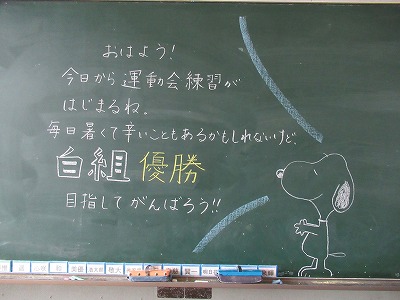 おはよう!
今日から運動会練習が
はじまるね。
毎日暑くて辛いこともあるかもしれないけど、
白組優勝
目指してがんばろう!!